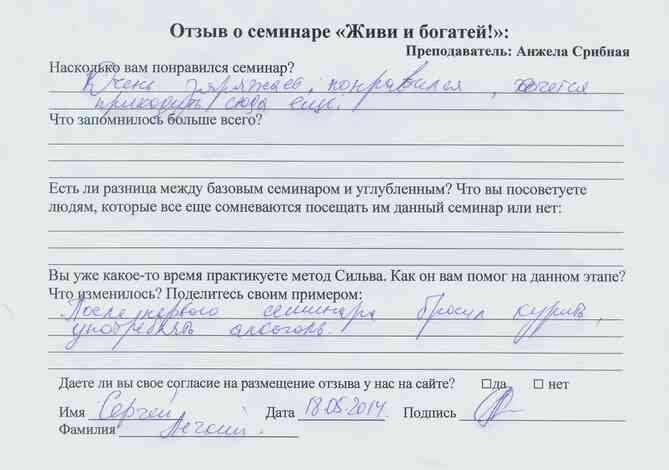 Отзыв о семинаре «Живи и богатей!»:
Преподаватель: Анжела Срибная
Насколько вам понравился семинар?
Очень заряжает, понравился, хочется
приходить сюда еще.
Что запомнилось больше всего?
Есть ли разница между базовым семинаром и углубленным? Что вы посоветуете
людям, которые все еще сомневаются посещать им данный семинар или нет:
Вы уже какое-то время практикуете метод Сильва. Как он вам помог на данном этапе?
Что изменилось? Поделитесь своим примером:
После первого семинара бросил курить,
употреблять алкоголь.
Даете ли вы свое согласие на размещение отзыва у нас на сайте? □да □ нет
Имя Сергей Дата 18.05.2014 Подпись
Фамилия